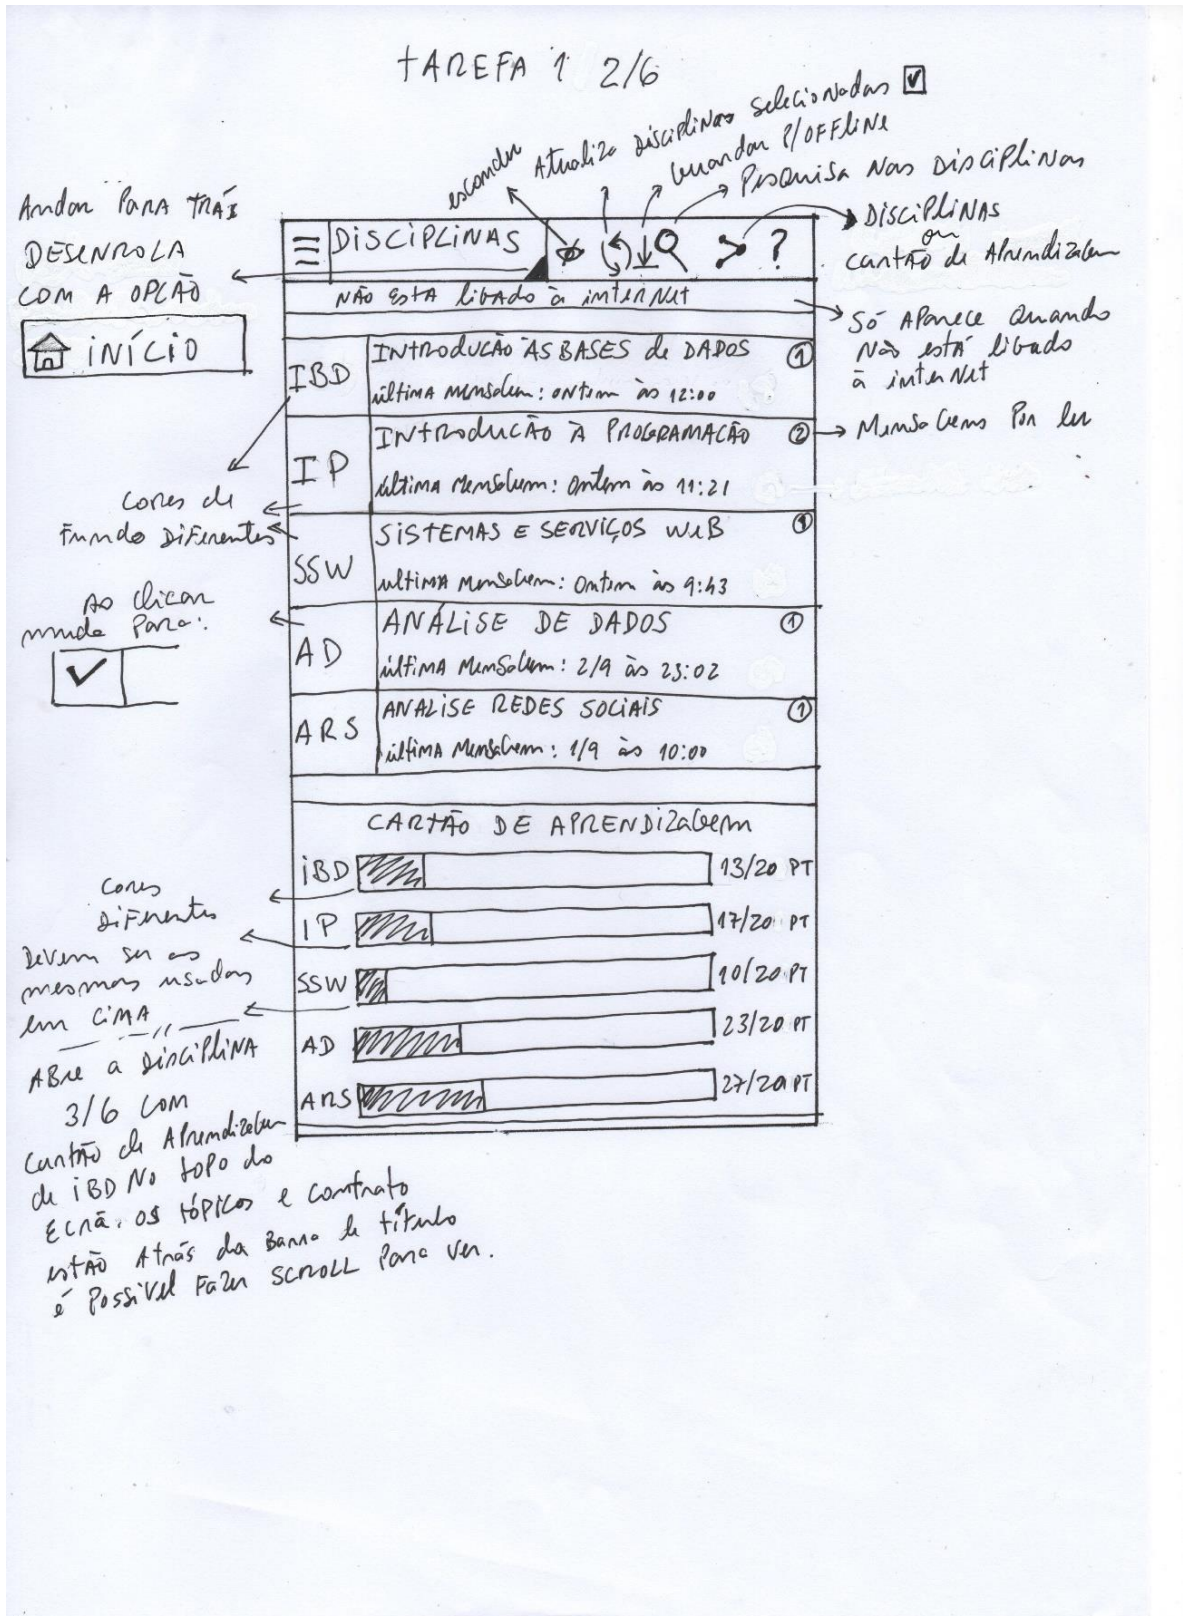 TAREFA 1 2/6
esconder
Atualiza Disciplinas selecionadas
Guardar P/OFFLINE
Pesquisa Nas Disciplinas
DISCIPLINAS
ou
cartão de Aprendizagem
Andar PARA TRÁS
DESENROLA
COM A OPÇÃO
INÍCIO
DISCIPLINAS ?
NÃO ESTA ligado à interNet
Só Aparece Quando
Não está ligado
à interNet
IBD
INTRODUCÃO ÀS BASES de DADOS 1
última mensagem: ontem às 12:00
IP
INTRODUCÃO À PROGRAMACÃO 2
última mensagem: Ontem às 11:21
Mensagens Por ler
Cores de
Fundo Diferentes
SSW
SISTEMAS E SERVIÇOS WEB 1
ultima mensagem: Ontem às 9:43
Ao clicar
muda Para:
AD
ANÁLISE DE DADOS 1
última Mensagem: 2/9 às 23:02
ARS
ANALISE REDES SOCIAIS 1
última Mensagem: 1/9 às 10:00
CARTÃO DE APRENDIZAGEM
IBD 13/20 PT
IP 17/20 PT
SSW 10/20 PT
AD 23/20 PT
ARS 27/20 PT
Cores
diFerentes
Devem ser as
mesmas usadas
em CIMA
ABre a DisciPliNA
3/6 COM
Cartão de Aprendizagem
de IBD No topo do
Ecrã. os tópicos e contrato
estão Atrás da Barra de título
é Possível Fazer SCROLL Para ver.